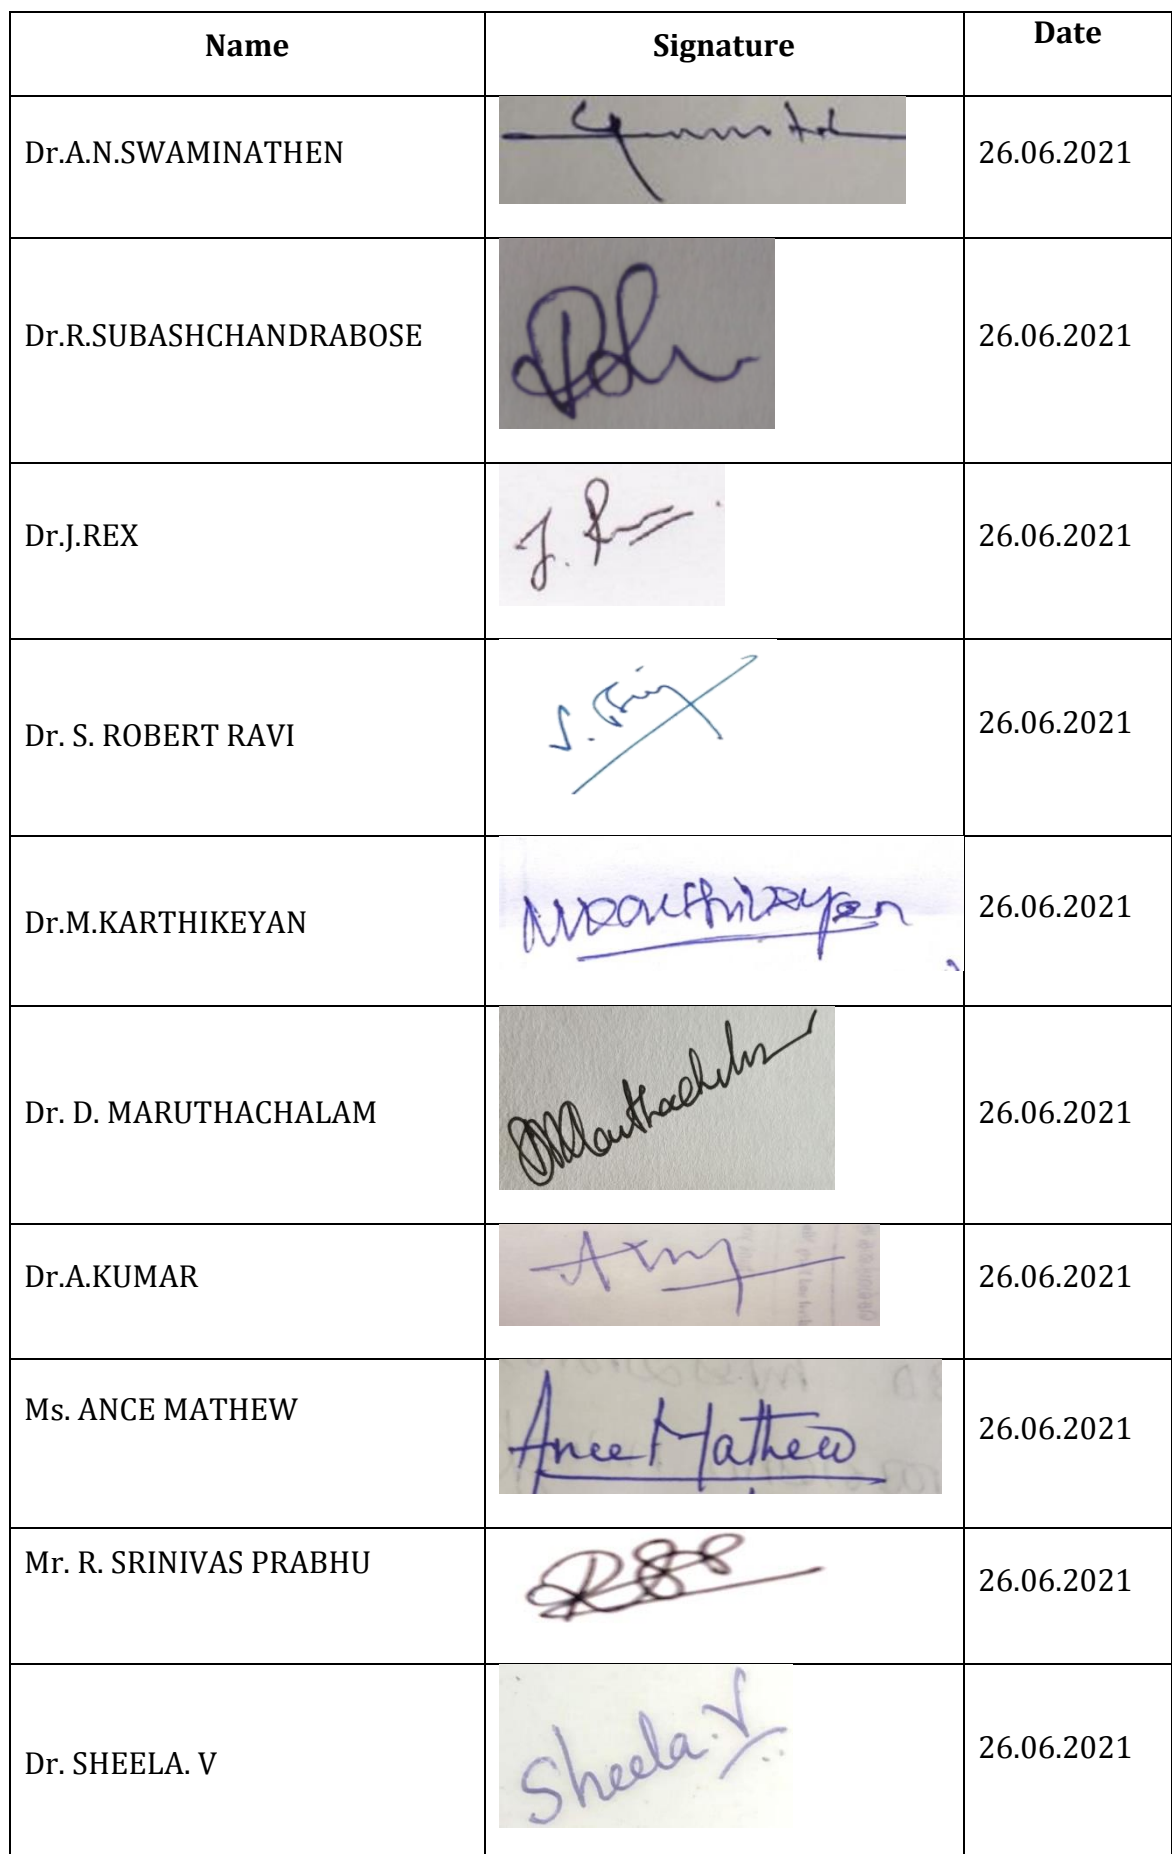 Name Signature Date
Dr.A.N.SWAMINATHEN 26.06.2021
Dr.R.SUBASHCHANDRABOSE 26.06.2021
Dr.J.REX J. 26.06.2021
Dr. S. ROBERT RAVI S. 26.06.2021
Dr.M.KARTHIKEYAN 26.06.2021
Dr. D. MARUTHACHALAM 26.06.2021
Dr.A.KUMAR 26.06.2021
Ms. ANCE MATHEW Ance Mathew 26.06.2021
Mr. R. SRINIVAS PRABHU 26.06.2021
Dr. SHEELA. V Sheela. V 26.06.2021